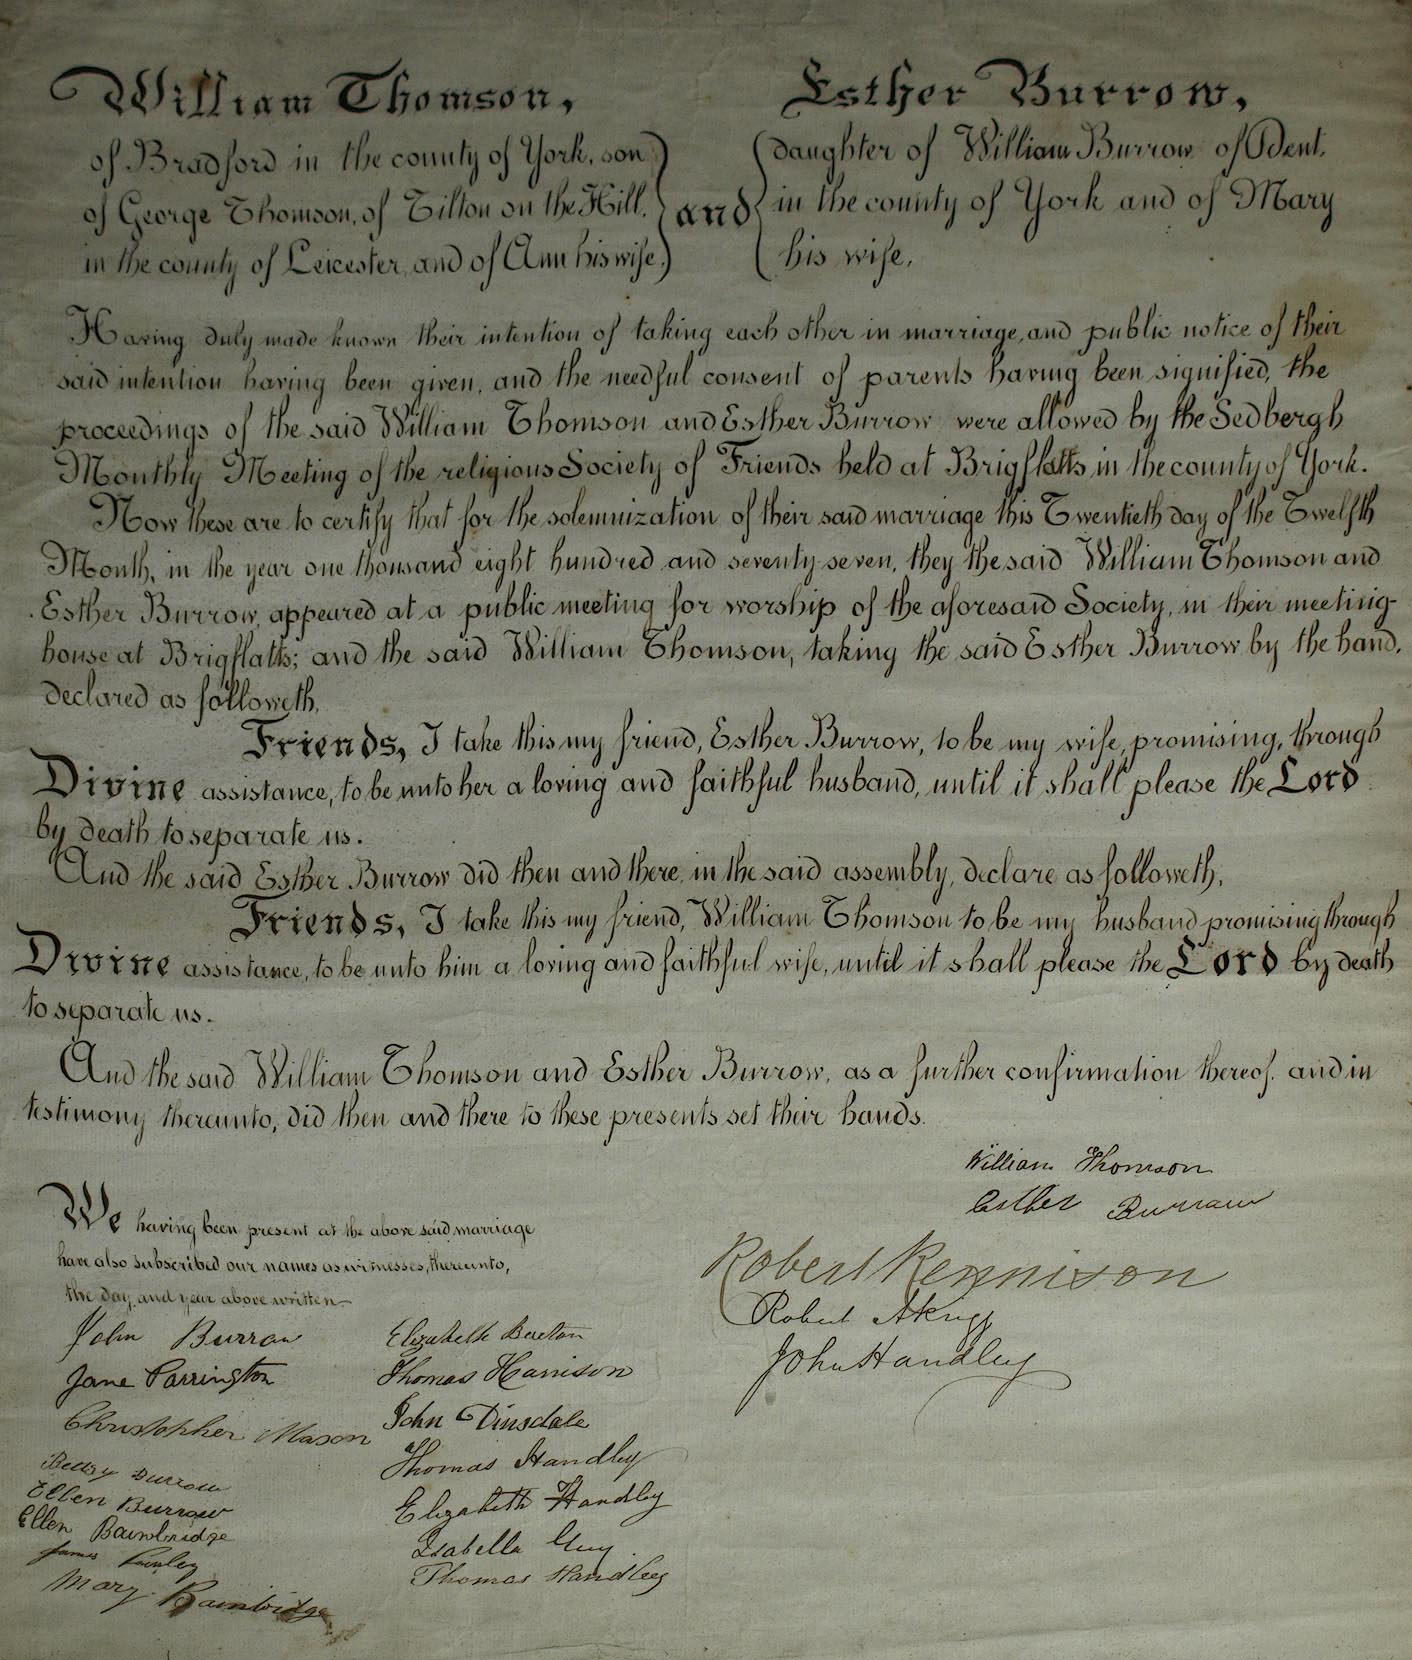 William Thomson,
of Bradford in the county of York, son
of George Thomson, of Tilton on the Hill,
in the county of Leicester, and of Ann his wife,
and
Esther Burrow,
daughter of William Burrow of Dent,
in the county of York and of Mary
his wife,
Having duly made known their intention of taking each other in marriage, and public notice of their
said intention having been given, and the needful consent of parents having been signified, the
proceedings of the said William Thomson and Esther Burrow were allowed by the Sedbergh
Monthly Meeting of the religious Society of Friends held at Brigflatts, in the county of York.
Now these are to certify that for the solemnization of their said marriage this Twentieth day of the Twelfth
Month, in the year one thousand eight hundred and seventy-seven, they the said William Thomson and
Esther Burrow, appeared at a public meeting for worship of the aforesaid Society, in their meeting-
house at Brigflatts; and the said William Thomson, taking the said Esther Burrow by the hand,
declared as followeth,
Friends, I take this my friend, Esther Burrow, to be my wife, promising, through
Divine assistance, to be unto her a loving and faithful husband, until it shall please the Lord
by death to separate us.
And the said Esther Burrow did then and there, in the said assembly, declare as followeth,
Friends, I take this my friend, William Thomson to be my husband promising through
Divine assistance, to be unto him a loving and faithful wife, until it shall please the Lord by death
to separate us.
And the said William Thomson and Esther Burrow, as a further confirmation thereof, and in
testimony thereunto, did then and there to these presents set their hands.
William Thomson
Esther Burrow
We having been present at the above said marriage
have also subscribed our names as witnesses, thereunto,
the day and year above written
John Burrow
Jane Parrington
Christopher Mason
Betsy Burrow
Ellen Burrow
Ellen Bainbridge
James
Mary Bainbridge
Elizabeth
Thomas Harrison
John Dinsdale
Thomas Handley
Elizabeth Handley
Isabella Guy
Thomas Handley
Robert Rennison
Robert Akrigg
John Handley